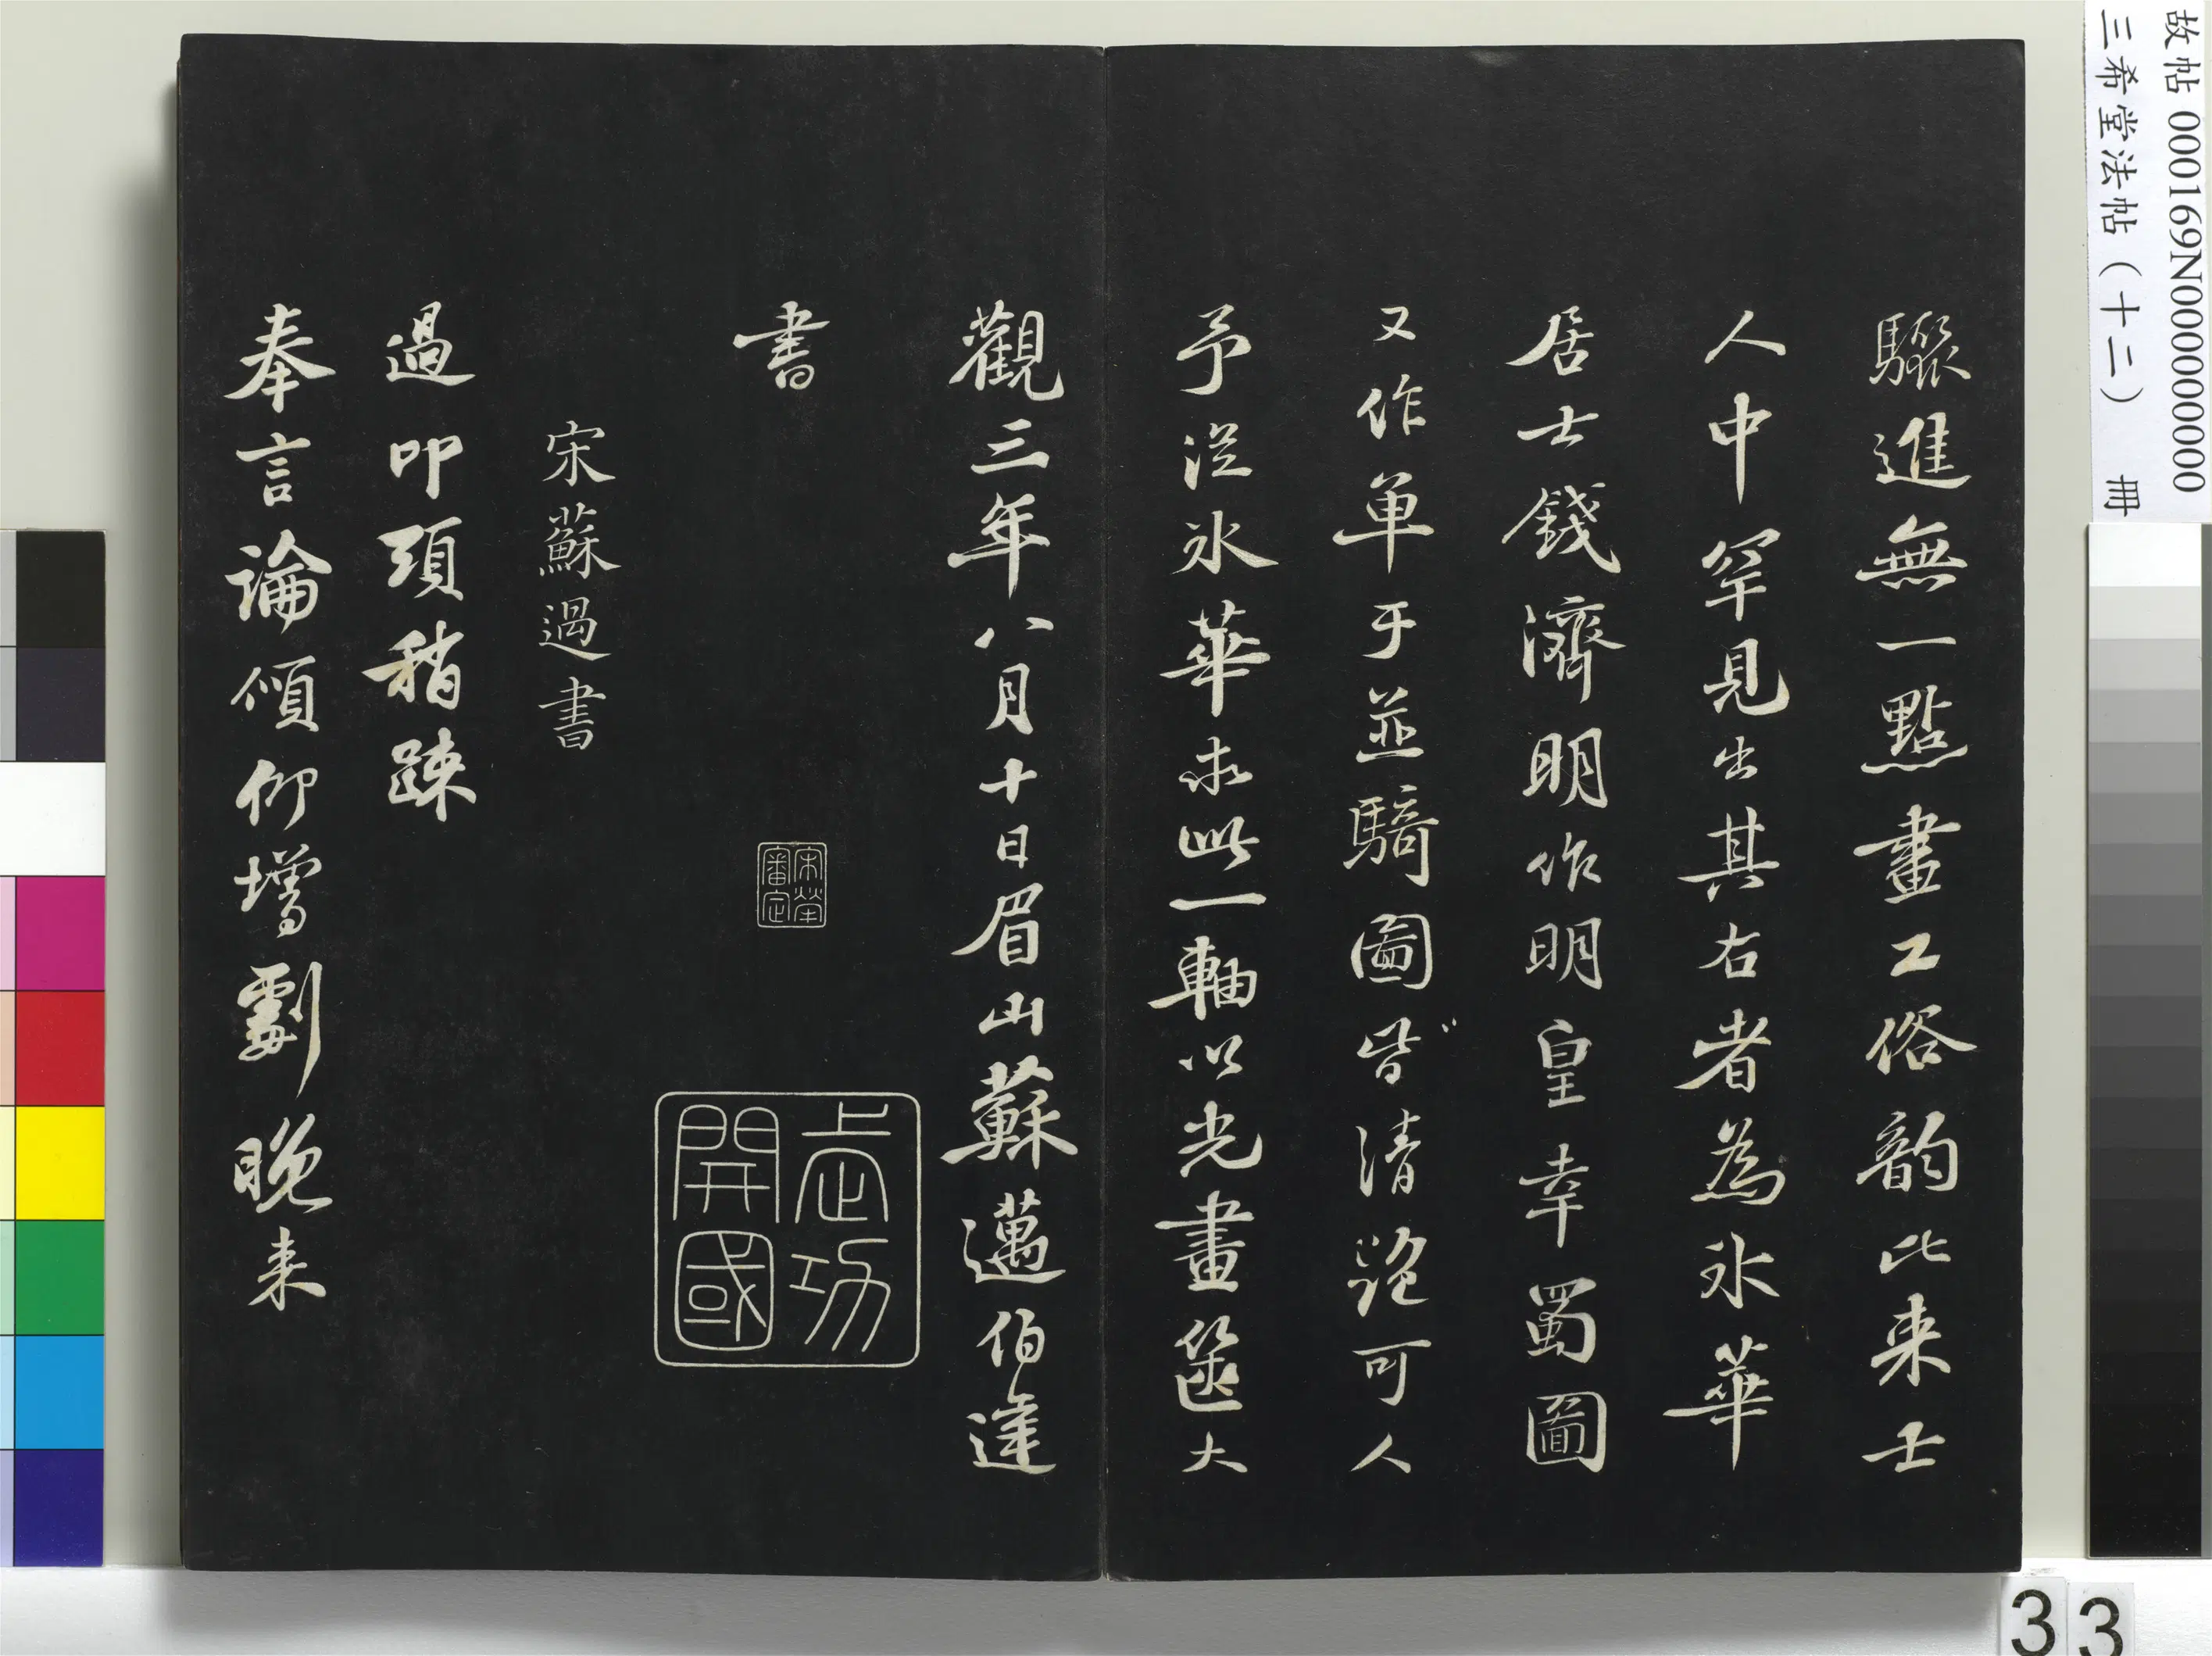 驟進無一點畫工俗韵比来士
人中罕見出其右者為氷華
居士錢濟明作明皇幸蜀圖
又作单于並騎圖皆清絶可人
予従氷華求此一軸以光畫篋大
觀三年八月十日眉山蘇邁伯達
書
宋犖審定
武功開國
宋蘇過書
過叩頭稍踈
奉言論傾仰增劇晚来
故帖 000169N000000000
三希堂法帖（十二） 冊
33